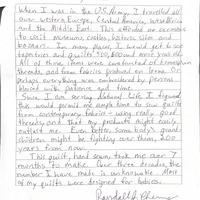 When I was in the U.S. Army, I travelled all
over western Europe, Central America, 
and the Middle East. This afforded me occasion
to visit museums, castles, historic sites and
bazaars. In many places, I would get to see
tapestries and quilts 300, 600 and more years old.
All of those items were constructed of homespun
threads and from fabrics produced on looms. Or
perhaps everything was embroidered by peasants
blessed with patience and time.
Since I am serving Natural Life I figured
this would permit me ample time to sew quilts
from contemporary fabrics - using really good
threads and that my products might easily
outlast me. Even better, somebody's grand
children might be fighting over them, 200
years from now.
This quilt, hand sewn, took me over 7
months to make. Over three decades, the
number I have made is unknowable. Most
of my quilts were designed for babies.
Randall